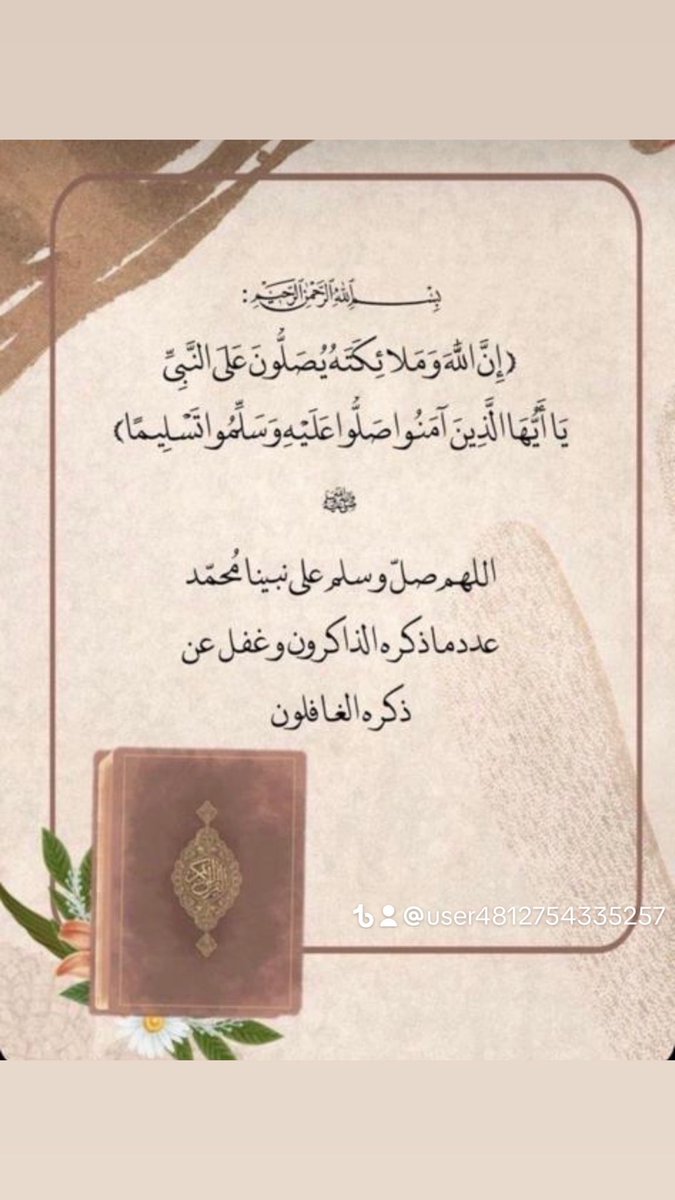 بِسْمِ ٱللَّهِ ٱلرَّحْمَٰنِ ٱلرَّحِيمِ :
(إِنَّ اللَّهَ وَمَلَائِكَتَهُ يُصَلُّونَ عَلَى النَّبِيِّ
يَا أَيُّهَا الَّذِينَ آمَنُوا صَلُّوا عَلَيْهِ وَسَلِّمُوا تَسْلِيمًا)
ﷺ
اللهم صلّ وسلم على نبينا مُحمّد
عدد ما ذكره الذاكرون وغفل عن
ذكره الغافلون
القرآن الكريم
@user4812754335257